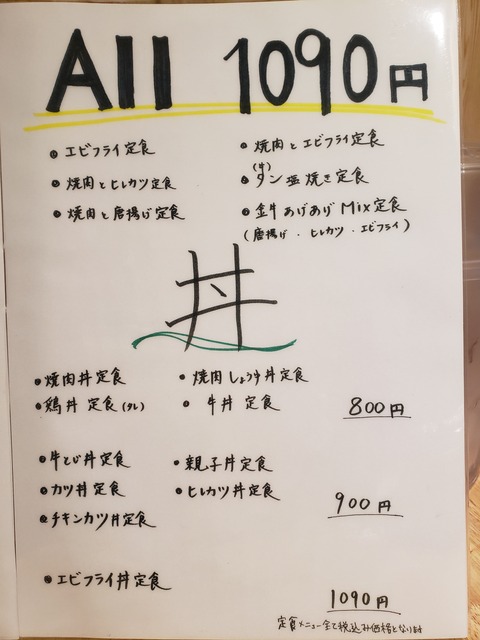 All 1090円
• エビフライ定食
• 焼肉とエビフライ定食
• 焼肉とヒレカツ定食
(牛)
• タン塩焼き定食
• 焼肉と唐揚げ定食
• 金牛あげあげMix定食
(唐揚げ・ヒレカツ・エビフライ)
丼
• 焼肉丼定食
• 焼肉しょうゆ丼定食
• 鶏丼 定食(タレ)
• 牛丼 定食
800円
• 牛とじ丼定食
• 親子丼定食
• カツ丼定食
• ヒレカツ丼定食
• チキンカツ丼定食
900円
• エビフライ丼定食
1090円
定食メニュー全て税込み価格となります